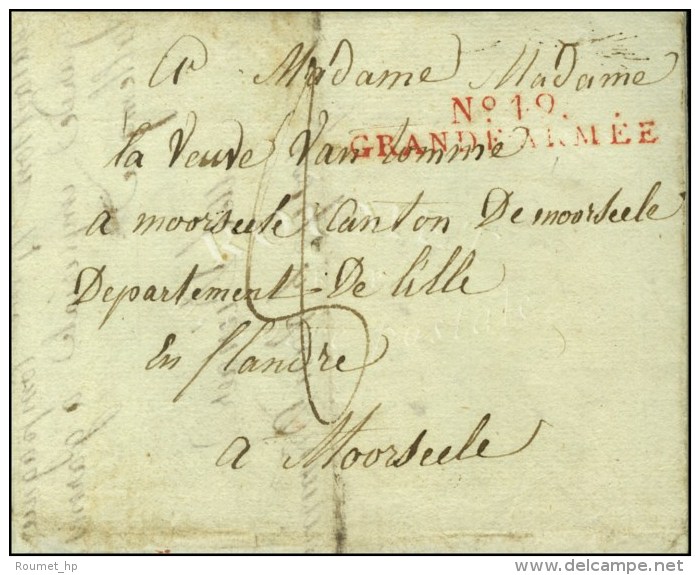 A Madame Madame
No. 19.
GRANDE ARMÉE
la veuve Vantomme
a moorsele Canton De moorsele
Departement De lille
En flandre
a Moorseele
Roumet_hp
delcampe.net